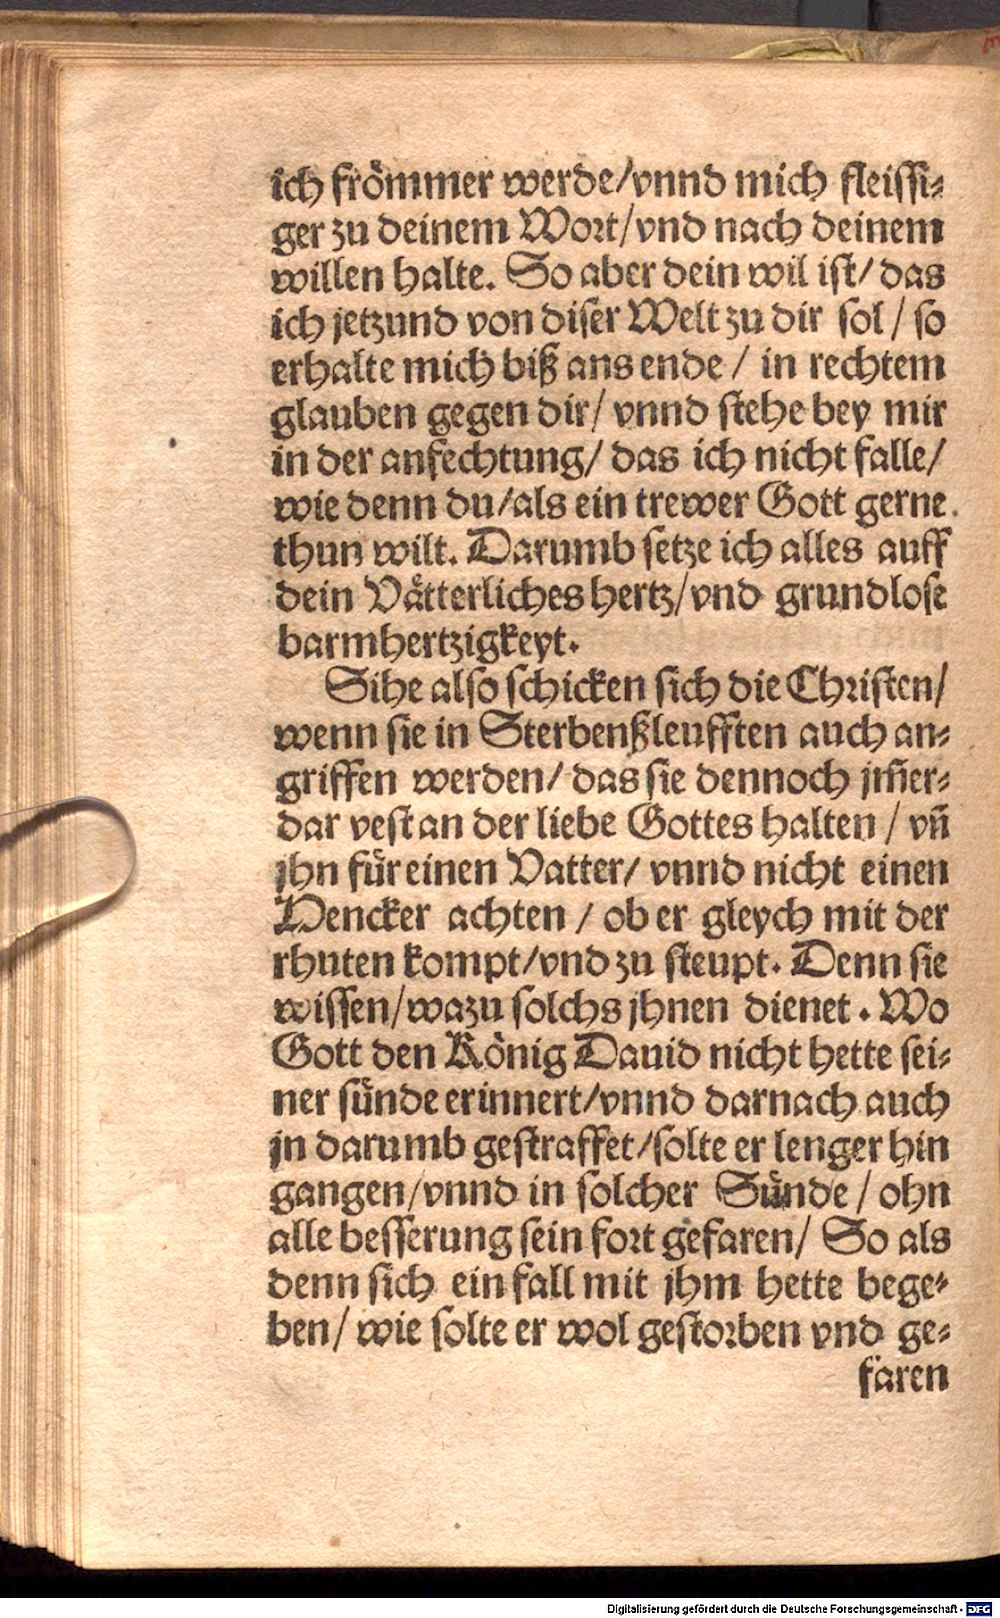 ich frömmer werde/vnnd mich fleissi⸗
ger zu deinem Wort/vnd nach deinem
willen halte. So aber dein wil ist/ das
ich jetzund von diser Welt zu dir sol / so
erhalte mich biß ans ende / in rechtem
glauben gegen dir/ vnnd stehe bey mir
in der anfechtung/ das ich nicht falle/
wie denn du/als ein trewer Gott gerne
thun wilt. Darumb setze ich alles auff
dein Vätterliches hertz/vnd grundlose
barmhertzigkeyt.
Sihe also schicken sich die Christen/
wenn sie in Sterbenßleufften auch an⸗
griffen werden/ das sie dennoch jm̃er⸗
dar vest an der liebe Gottes halten / vñ
jhn für einen Vatter/ vnnd nicht einen
Hencker achten / ob er gleych mit der
rhuten kompt/vnd zu steupt. Denn sie
wissen/wazu solchs jhnen dienet. Wo
Gott den König Dauid nicht hette sei⸗
ner sünde erinnert/vnnd darnach auch
jn darumb gestraffet/solte er lenger hin
gangen/vnnd in solcher Sünde / ohn
alle besserung sein fort gefaren/ So als
denn sich ein fall mit jhm hette bege⸗
ben/ wie solte er wol gestorben vnd ge⸗
faren
Digitalisierung gefördert durch die Deutsche Forschungsgemeinschaft - DFG